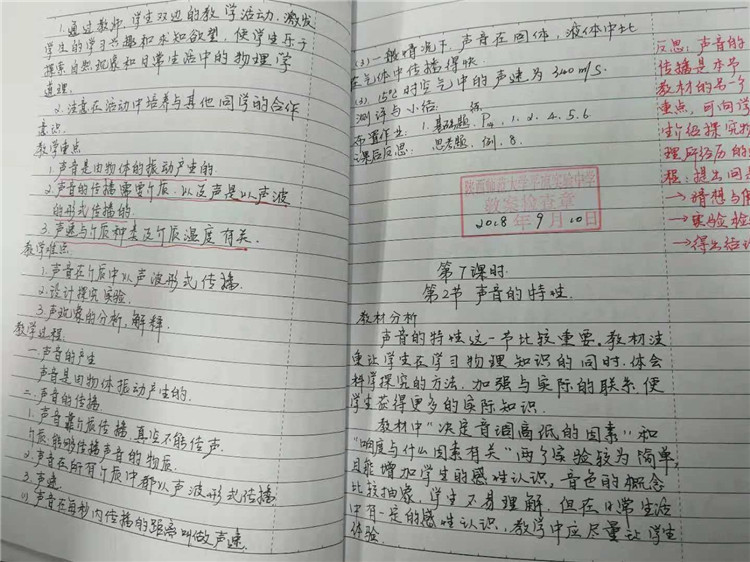 1.通过教师、学生双边的教学活动,激发
学生的学习兴趣和求知欲望,使学生乐于
探索自然现象和日常生活中的物理学
道理。
2.注意在活动中培养与其他同学的合作
意识。
教学重点
1.声音是由物体的振动产生的
2.声音的传播需要介质.以及声是以声波
的形式传播的.
3.声速与介质种类及介质温度有关.
教学难点
1.声音在介质中以声波形式传播.
2.设计探究实验.
3.声现象的分析、解释.
教学过程:
一.声音的产生
声音是由物体振动产生的.
二.声音的传播.
1.声音靠介质传播.真空不能传声.
介质:能够传播声音的物质.
2.声音在所有介质中都以声波形式传播
3.声速
(1)声音在每秒内传播的距离叫做声速.
(2)一般情况下,声音在固体、液体中比
在气体中传播得快.
(3)15℃时空气中的声速为340m/S.
测评与小结:
布置作业: 1.基础题.P4,1、2、4、5、6
课后反思: 思考题,例,8.
陕西师范大学平凉实验中学
教案检查章
2018年9月10日
反思:声音的
传播是本节
教材的另一个
重点,可向学
生介绍探究物
理所经历的
程:提出问
→猜想与假
→实验检
→得出结论
第7课时.
第2节 声音的特性.
教材分析
声音的特性这一节比较重要.教材注
重让学生在学习物理知识的同时.体会
科学探究的方法,加强与实际的联系.使
学生获得更多的实际知识.
教材中"决定音调高低的因素"和
"响度与什么因素有关"两个实验较为简单,
且能增加学生的感性认识,音色的概念
比较抽象,学生不易理解.但在日常生活
中有一定的感性认识,教学中应尽量让学生
体验.